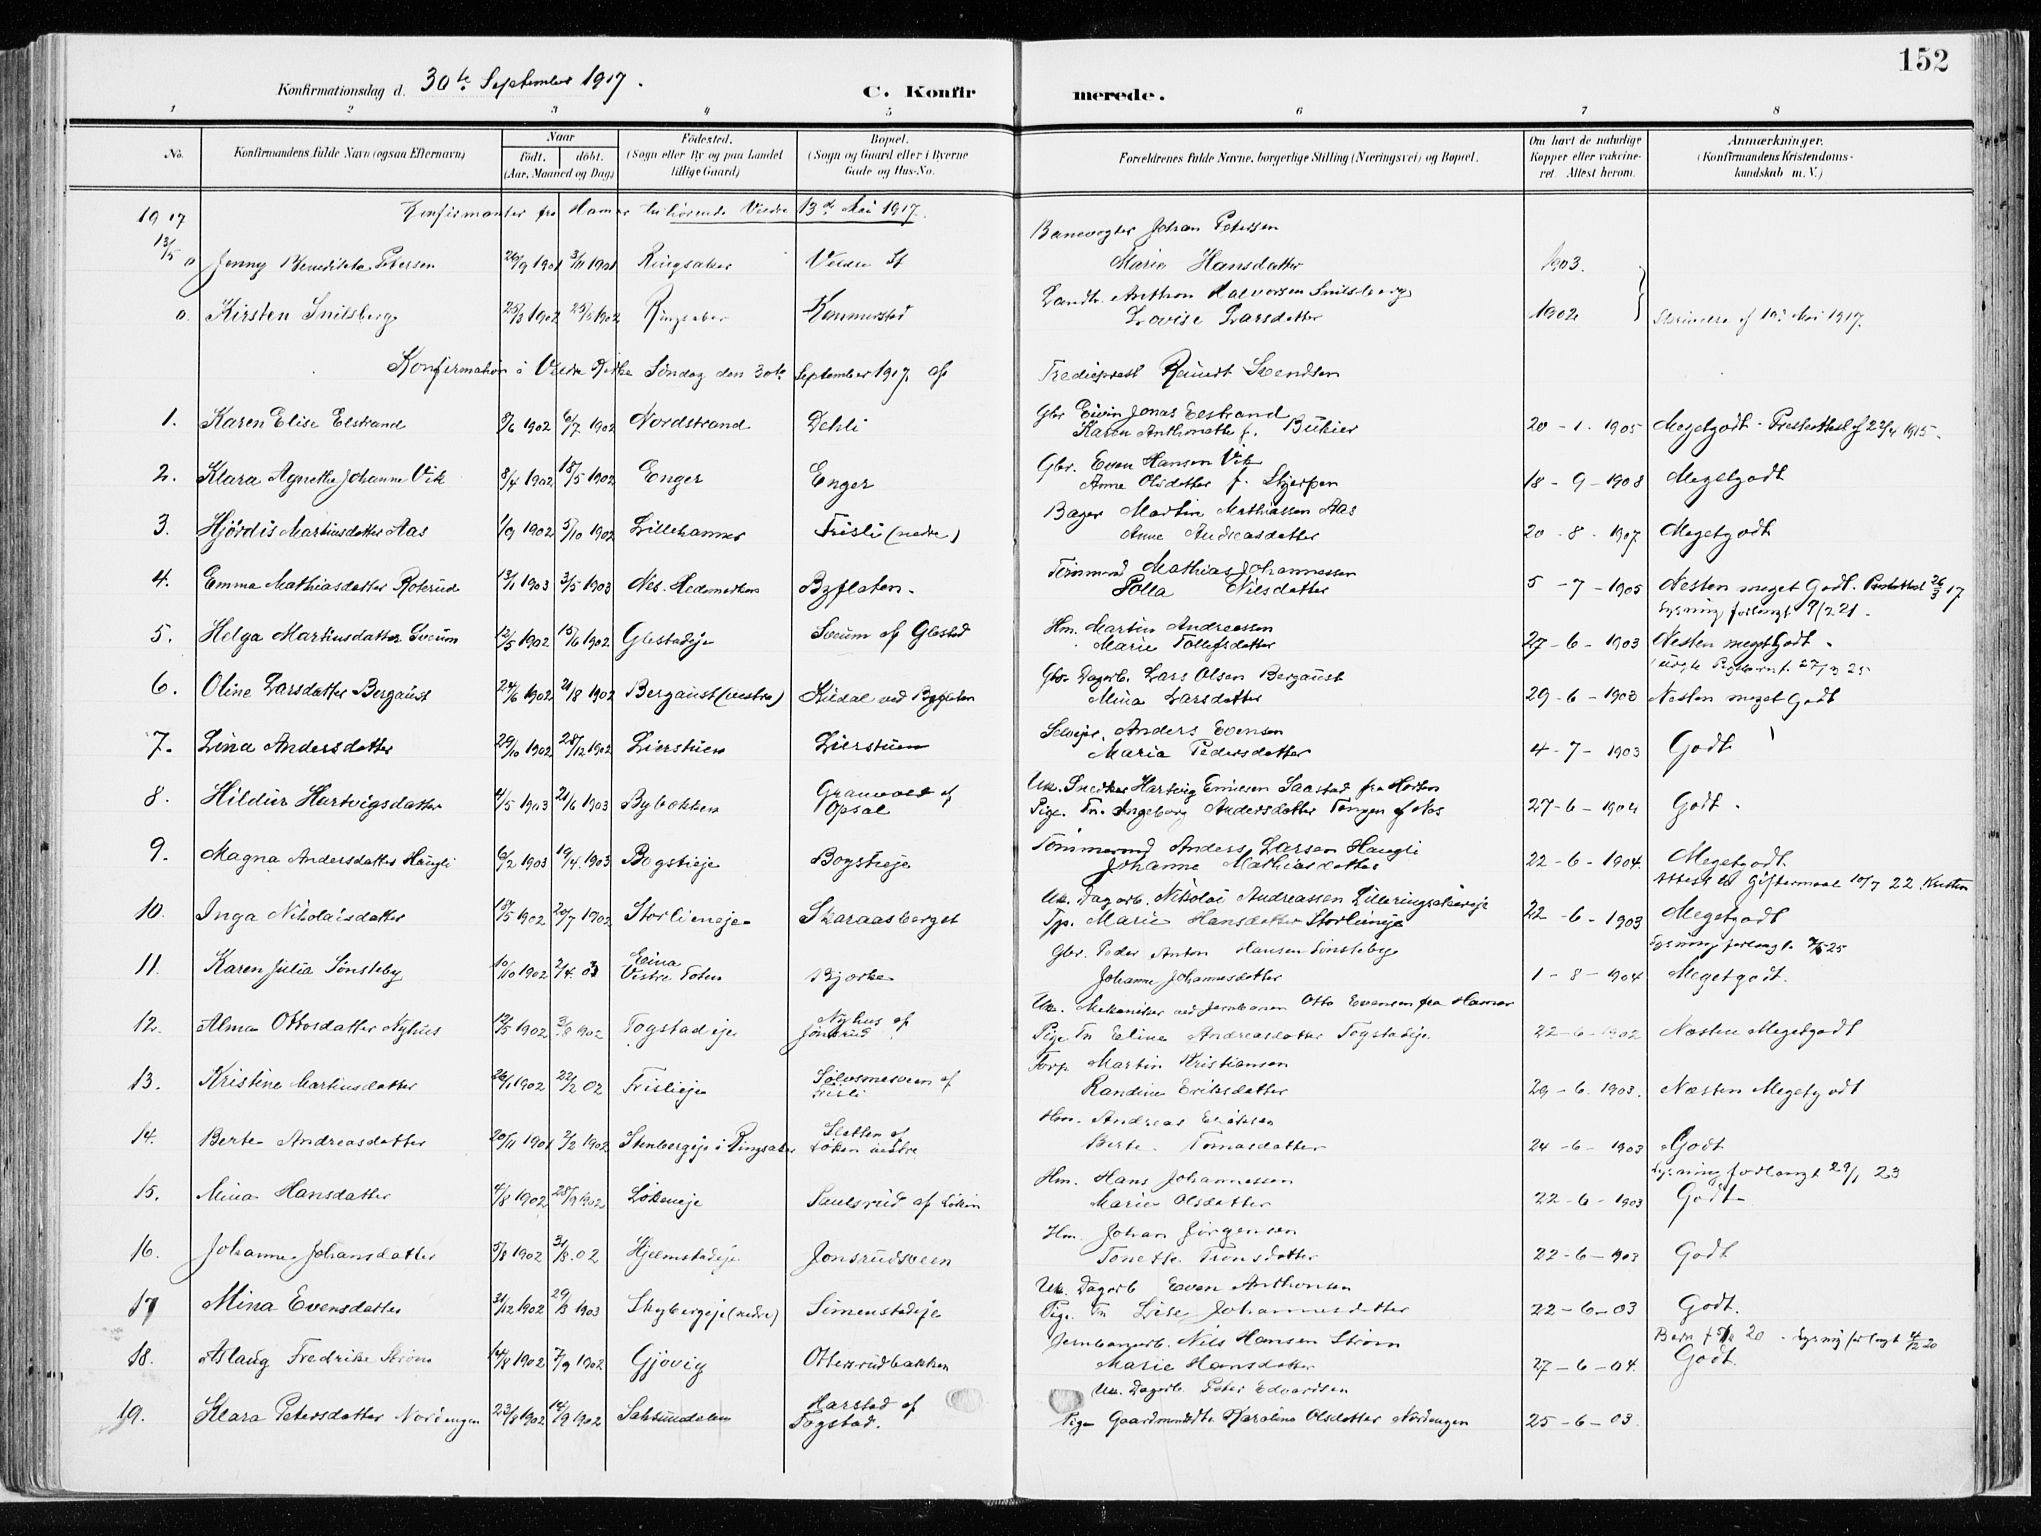 152
Konfirmationsdag d. 30te September 1917.
C. Konfirmerede.
1 2 3 4 5 6 7 8
No.
Konfirmandens fulde Navn (ogsaa Efternavn)
Naar
födt. döbt.
(Aar, Maaned og Dag)
Födested.
(Sogn eller By og paa Landet
tillige Gaard)
Bopæl.
(Sogn og Gaard eller i Byerne
Gade og Hus-No.
Forældrenes fulde Navne, borgerlige Stilling (Næringsvei) og Bopæl.
Om havt de naturlige
Kopper eller vakcine-
ret. Attest herom.
Anmærkninger.
(Konfirmandens Kristendoms-
kundskab m. V.)
1917 Konfirmanter fra Hamar Veldre 13de Mai 1917.
13/5 Jenny Benedikte Petersen 26/9 1901 3/11 1901 Ringsaker Veldre St Banevogter Johan Petersen
Marie Hansdatter 1903.
Kirsten Snilsberg 25/3 1902 1902 Ringsaker Kommerstad Landh. Anthon Halvorsen Snilsberg
Lovise Larsdatter 1902 Skrivelse af 10. Mai 1917.
Konfirmation i Veldre Kirke Söndag den 30te September 1917 af Tredieprest Svendsen
1. Karen Elise Elstrand 8/6 1902 6/7 1902 Nordstrand Dehli Gbr Jonas Elstrand
Karen Anthonette f. 20-1-1905 Megetgodt - Presteattest af 22/4 1915.
2. Klara Agnethe Johanne Vik 8/4 1902 18/5 1902 Enger Enger Gbr. Even Hansen Vik
Anne Olsdatter f. Skjerpen 18-9-1908 Megetgodt
3. Hjördis Martinsdatter Aas 1/9 1902 5/10 1902 Lillehammer Frisli (nedre) Bager Martin Mathiassen Aas
Anne Andreasdatter 20-8-1907 Megetgodt
4. Emma Mathiasdatter Roterud 13/1 1903 3/5 1903 Nes. Hedemarken Byflaten. Mathias Johannessen
Nilsdatter 5-7-1905 Nesten meget Godt. Presteattest 26/3 17
Lysning forlangt 9/2 21.
5. Helga Martinsdatter Sveum 12/5 1902 15/6 1902 Glestadeje Sveum af Glestad Hm. Martin Andreassen
Marie Tollefsdatter 27-6-1903 Nesten megetgodt.
6. Oline Larsdatter Bergaust 24/6 1902 21/8 1902 Bergaust (vestre) ved Byflaten Gbr Dagarb. Lars Olsen Bergaust
Mina Larsdatter 29-6-1903 Nesten meget Godt
7. Lina Andersdatter 29/10 1902 28/12 1902 Lierstuen Lierstuen Selvejer. Anders Evensen
Maria Pedersdatter 4-7-1903 Godt
8. Hildur Hartvigsdatter 4/5 1903 21/6 1903 Bybakken af
Opsal Uk. Snedker Hartvig Saastad fra Horten
Pige Tn. Ingeborg Andersdatter 27-6-1904 Godt.
9. Magna Andersdatter Haugli 6/2 1903 19/4 1903 Bogstieje Bogstieje Tömmermd Anders Larsen Haugli
Johanne Mathiasdatter 22-6-1904. Megetgodt.
Attest til Giftermaal 10/7 22. Kirsten
10. Inga Nikolaisdatter 18/5 1902 20/7 1902 Storlieneje Skaraasberget Uk. Dagarb. Nikolai Andreassen
Tp. Marie Hansdatter Storlieneje 22-6-1903 Megetgodt
Lysning forlangt
11. Karen Julia Sönsteby 10/10 1902 2/4. 03 Eina
Vestre Toten Bjørke Gbr. Peder Anton Hansen Sönsteby
Johanne Johannesdatter 1-8-1904 Megetgodt.
12. Alma Ottosdatter Nyhus 12/5 1902 3/8 1902 Togstadeje Nyhus af
Jönsrud Uk. Mekaniker ved Jernbanen Otto Evensen fra Hamar
Pige Tn Eline Andreasdatter Togstadeje 22-6-1902 Næsten Megetgodt
13. Kristine Martinsdatter 26/1 1902 22/2 02 Frislieje af
Frisli Torp. Martin Kristiansen
Randine Eriksdatter 29-6.1903. Næsten Megetgodt
14. Berte Andreasdatter 20/11 1901 2/2 1902 Stenbergeje i Ringsaker Sletten af
Løken vestre Hm. Andreas
Berte Tomasdatter 24-6-1903 Godt
Lysning forlangt 29/1 23
15. Mina Hansdatter 4/8 1902 28/9 1902 Løkeneje Paulsrud af Løken Hm. Hans Johannessen
Marie Olsdatter 22-6-1903 Godt
16. Johanne Johansdatter 5/8 1902 31/8.02 Hjelmstadeje Jonsrudsveen Hm. Johan Jörgensen
Tonette Tronsdatter 22-6-1903 Godt
17 Mina Evensdatter 31/12 1902 29/3 1903 Skybergeje (nedre) Simenstadeje Uk. Dagarb Even Anthonsen
Pige Tn Lise Johannesdatter 22-6-03 Godt.
18. Aslaug Fredrikke Ström 14/8 1902 7/9 1902 Gjövig Ottersrudbakken Jernbanearb. Nils Hansen Ström
Marie Hansdatter 27-6-04. Barn 20 - Lysning forlangt 4/12 20
Godt.
19. Klara Petersdatter Nordengen 23/8 1902 14/9 1902 Saksumdalen Harstad af
Togstad. Uk. Dagarb. Peter Edvardsen
Pige Karoline Olsdatter Nordengen 25-6-03.